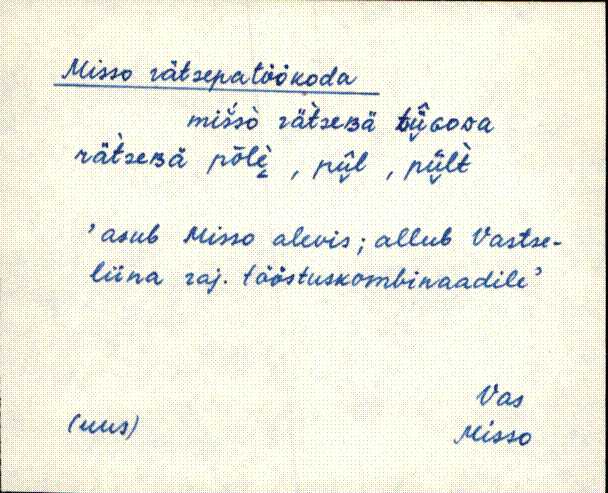 Misso rätsepatöökoda
miśsò rät̀seʙä tü̬̂ɢoᴅa
rät̀seʙä põlè̬ , pü̬̂l , pü̬̂lt̀
'asub Misso alevis; allub Vastse-
liina raj. tööstuskombinaadile'
Vas
(uus)
Misso